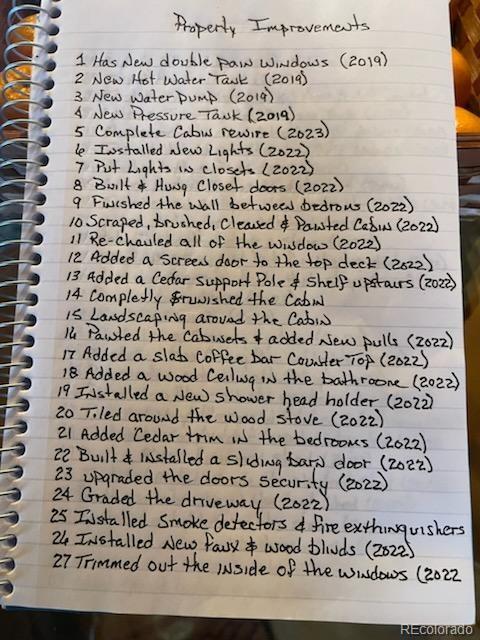 Property Improvements
1 Has New double pain windows (2019)
2 New Hot Water Tank (2019)
3 New water pump (2019)
4 New Pressure Tank (2019)
5 Complete Cabin rewire (2023)
6 Installed New Lights (2022)
7 Put Lights in closets (2022)
8 Built & Hung Closet doors (2022)
9 Finished the wall between bedroms (2022)
10 Scraped, brushed, Cleaned & Painted Cabin (2022)
11 Re-chauled all of the windows (2022)
12 Added a Screen door to the top deck (2022)
13 Added a Cedar Support Pole & Shelf upstairs (2022)
14 Completly furnished the Cabin
15 Landscaping around the Cabin
16 Painted the Cabinets & added New pulls (2022)
17 Added a slab Coffee bar Counter Top (2022)
18 Added a wood Ceiling in the bathroome (2022)
19 Installed a New shower head holder (2022)
20 Tiled around the wood stove (2022)
21 Added Cedar trim in the bedrooms (2022)
22 Built & Installed a sliding barn door (2022)
23 upgraded the doors security (2022)
24 Graded the driveway (2022)
25 Installed Smoke detectors & fire exthinquishers
26 Installed New faux & wood blinds (2022)
27 Trimmed out the inside of the windows (2022
REcolorado